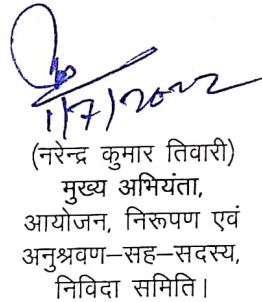 1/7/2022
(नरेन्द्र कुमार तिवारी)
मुख्य अभियंता,
आयोजन, निरूपण एवं
अनुश्रवण–सह–सदस्य,
निविदा समिति।